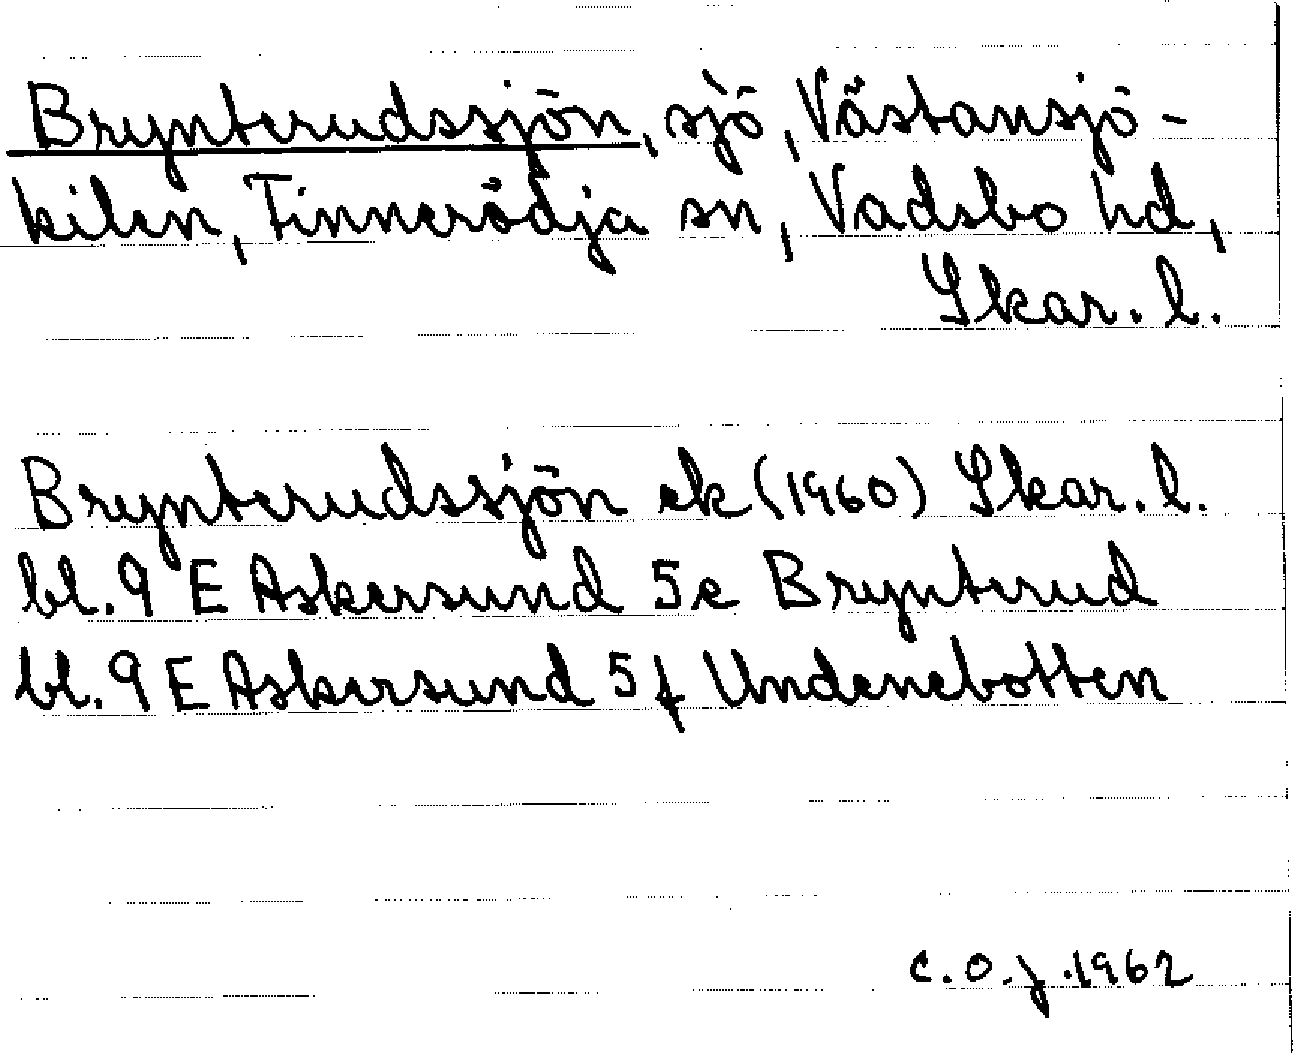 Brynterudssjön, sjö, Västansjö-
kilen, Tinnerödja sn, Vadsbo hd,
Skar. l.
Brynterudssjön ek (1960) Skar. l.
bl. 9 E Askersund 5e Brynterud
bl. 9 E Askersund 5f Undenebotten
C.O.J. 1962